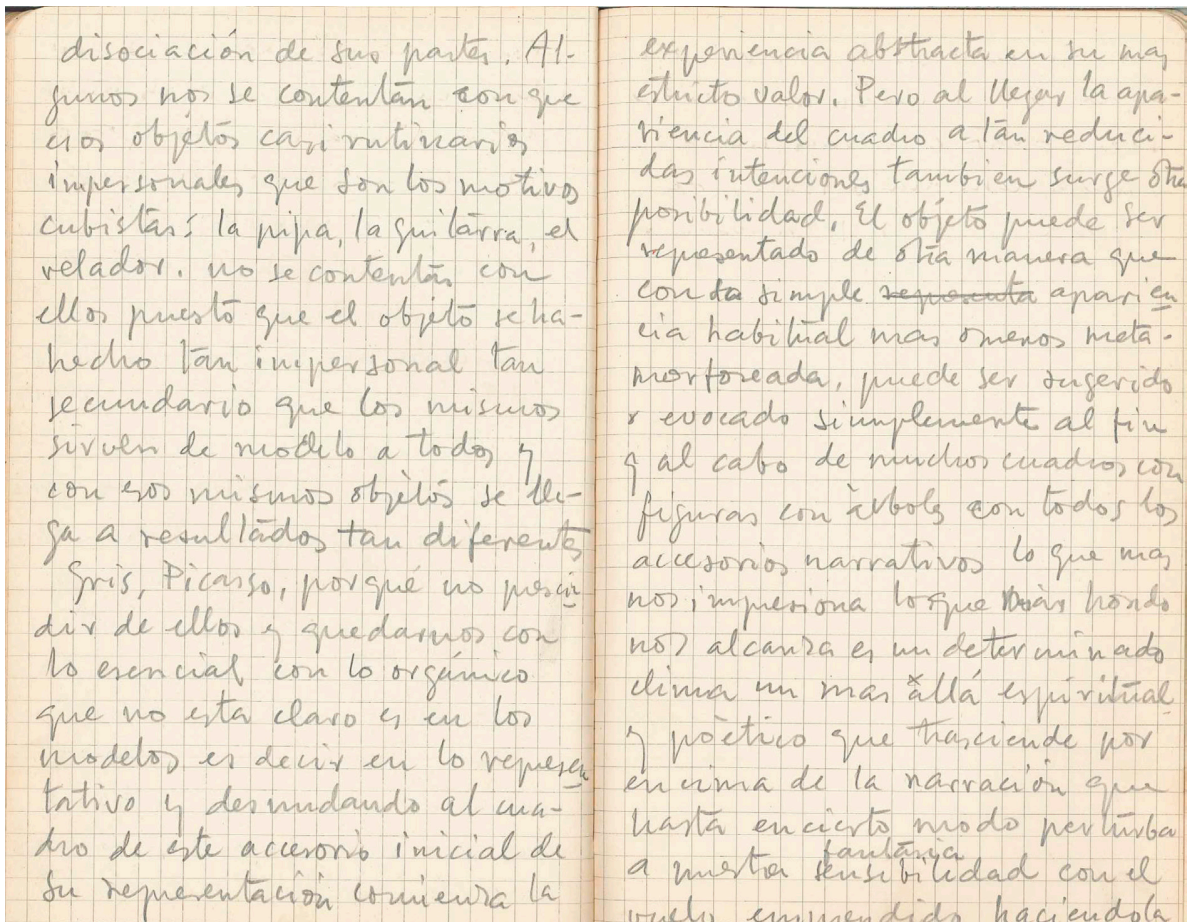 disociación de sus partes. Al-
gunos nos se contentan con que
esos objetos casi rutinarios
impersonales que son los motivos
cubistas: la pipa, la guitarra, el
velador. no se contentan con
ellos puesto que el objeto se ha-
hecho tan impersonal tan
secundario que los mismos
sirven de modelo a todos y
con esos mismos objetos se lle-
ga a resultados tan diferentes
Gris, Picasso, porqué no prescin
dir de ellos y quedarnos con
lo esencial con lo orgánico
que no esta claro es en los
modelos es decir en lo represen
tativo y desnudando al cua-
dro de este accesorio inicial de
su representación comienza la
experiencia abstracta en su mas
estricto valor. Pero al llegar la apa-
riencia del cuadro a tan reduci-
das intenciones tambien surge otra
posibilidad, El objeto puede ser
representado de otra manera que
con la simple representa aparien
cia habitual mas o menos meta-
morfoseada, puede ser sugerido
y evocado simplemente al fin
y al cabo de muchos cuadros con
figuras con árboles con todos los
accesorios narrativos lo que mas
nos impresiona lo que más hondo
nos alcanza es un determinado
clima un mas allá espiritual
y poètico que trasciende por
encima de la narración que
hasta en cierto modo perturba
fantasia
a nuestra sensibilidad con el
vuelo emprendido haciendola